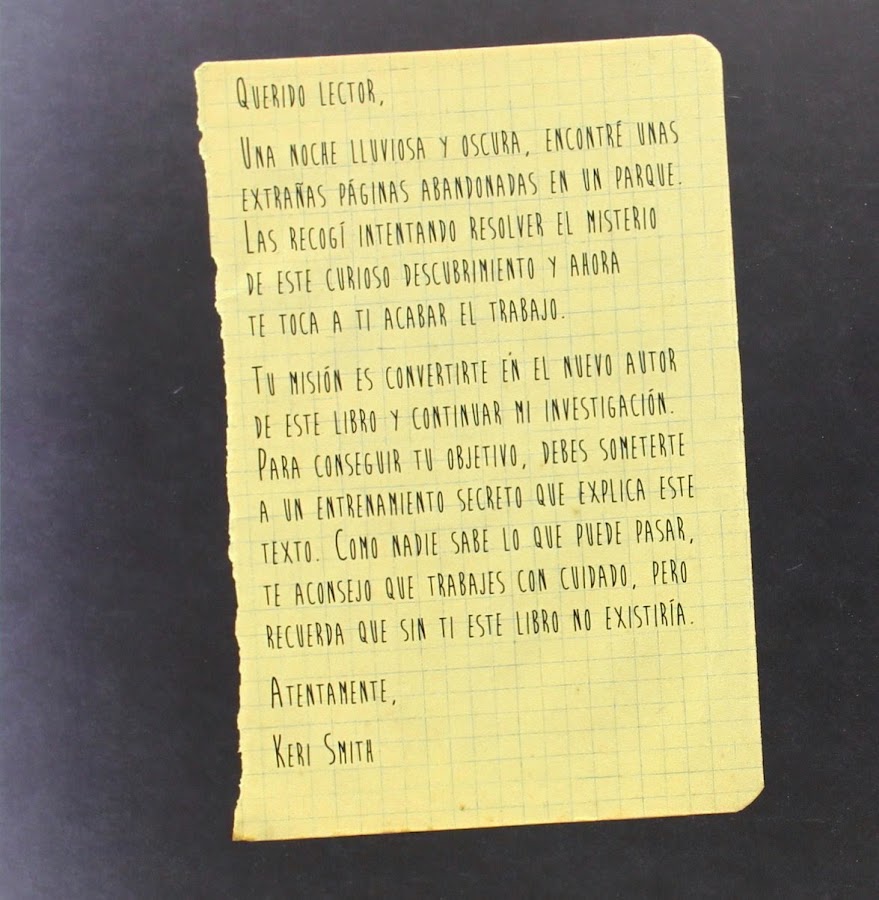 Querido lector,
Una noche lluviosa y oscura, encontré unas
extrañas páginas abandonadas en un parque.
Las recogí intentando resolver el misterio
de este curioso descubrimiento y ahora
te toca a ti acabar el trabajo.
Tu misión es convertirte en el nuevo autor
de este libro y continuar mi investigación.
Para conseguir tu objetivo, debes someterte
a un entrenamiento secreto que explica este
texto. Como nadie sabe lo que puede pasar,
te aconsejo que trabajes con cuidado, pero
recuerda que sin ti este libro no existiría.
Atentamente,
Keri Smith